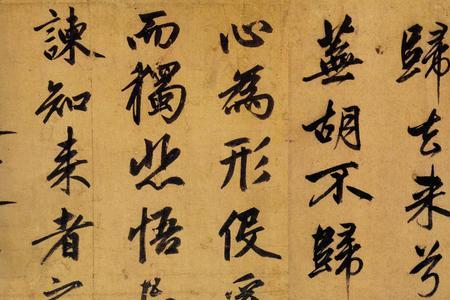 歸去来兮
蕪胡不歸
心為形役
而獨悲悟
諫知来者